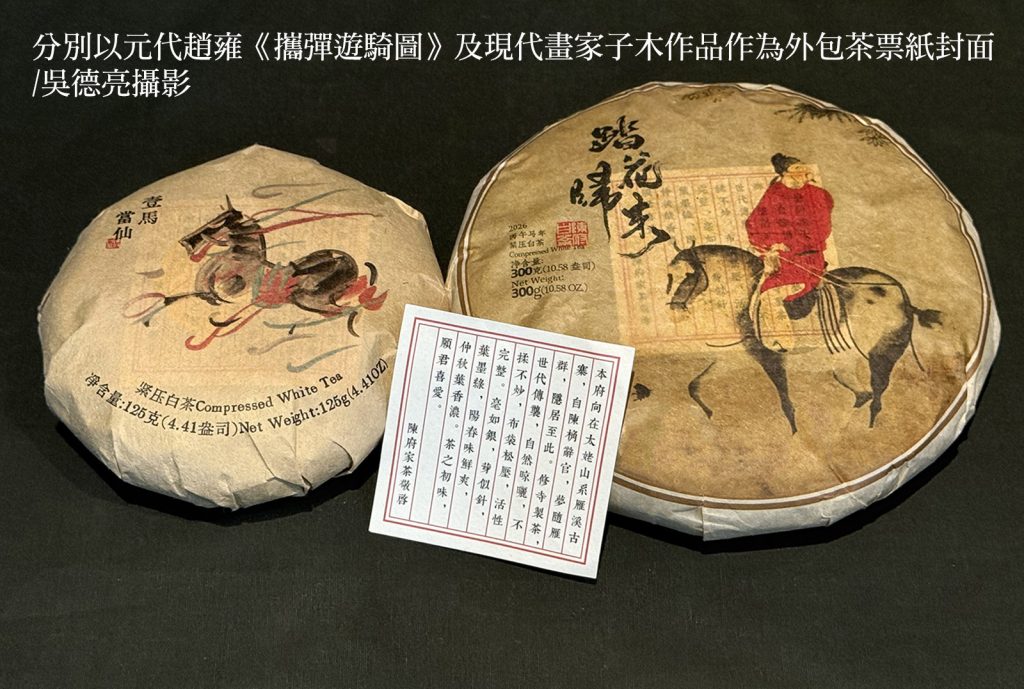 分別以元代趙雍《攜彈遊騎圖》及現代畫家子木作品作為外包茶票紙封面
/吳德亮攝影
壹馬
當仙
紧压白茶Compressed White Tea
净含量:125克(4.41盎司)Net Weight:125g(4.41OZ)
踏花
歸來
2026
丙午马年
紧压白茶
Compressed White Tea
净含量:
300克(10.58 盎司)
Net Weight:
300g(10.58 OZ.)
本府向在太姥山系雁溪古
寨，自陳桷辭官，夢隨雁
群，隱居至此。修寺製茶，
世代傳襲，自然晾曬，不
揉不炒，布袋松壓，活性
完整。毫如銀，芽似針，
葉墨綠，陽春味鮮爽，
仲秋葉香濃。茶之初味，
願君喜愛。
陳府家茶敬啓